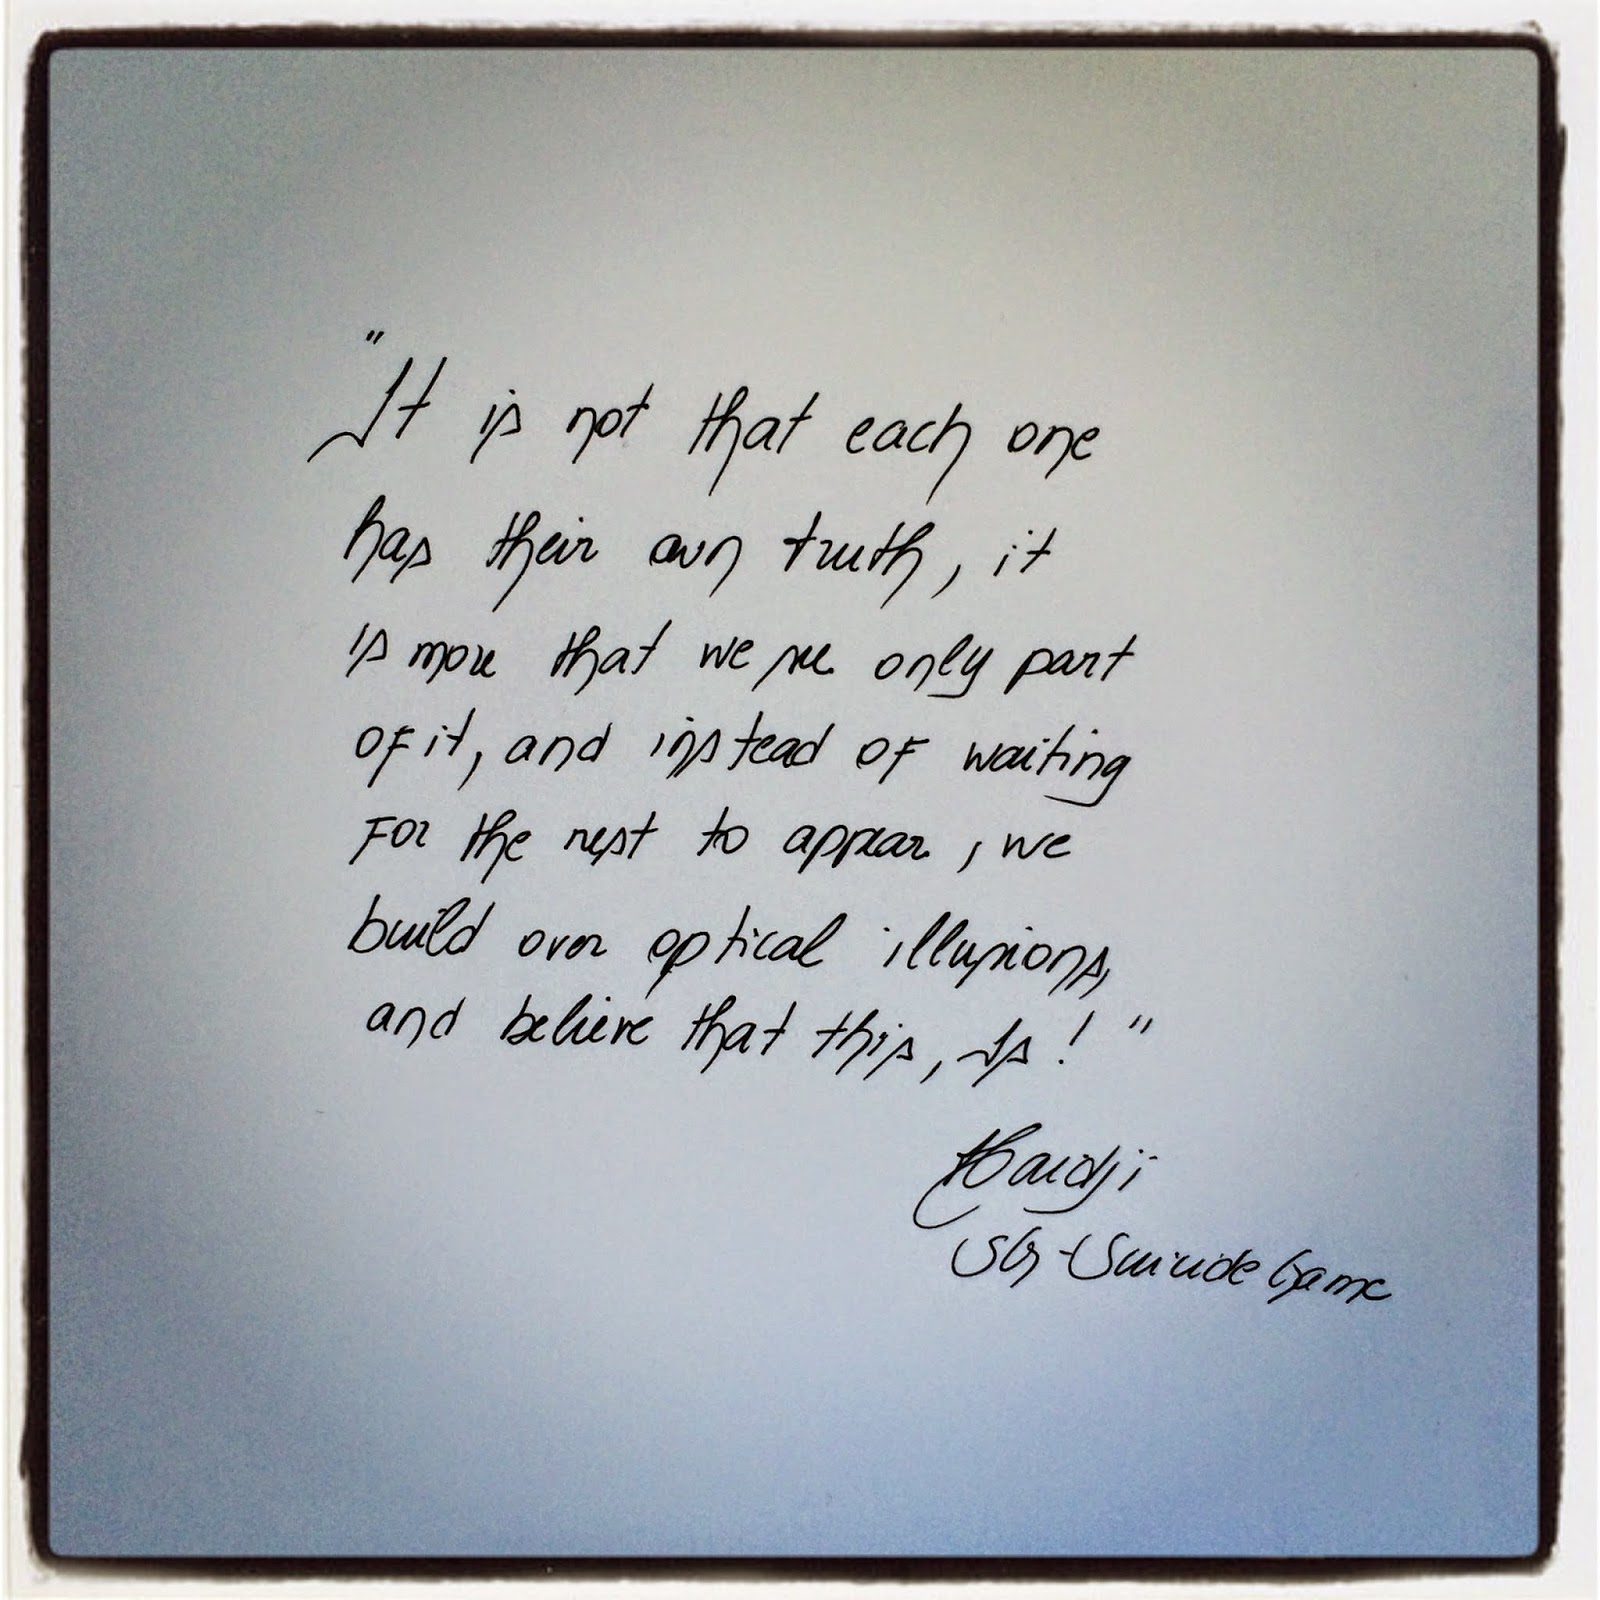 "It is not that each one
has their own truth, it
is more that we see only part
of it, and instead of waiting
for the rest to appear, we
build over optical illusions,
and believe that this, Is!"
Haidji
SG - Suicide Game